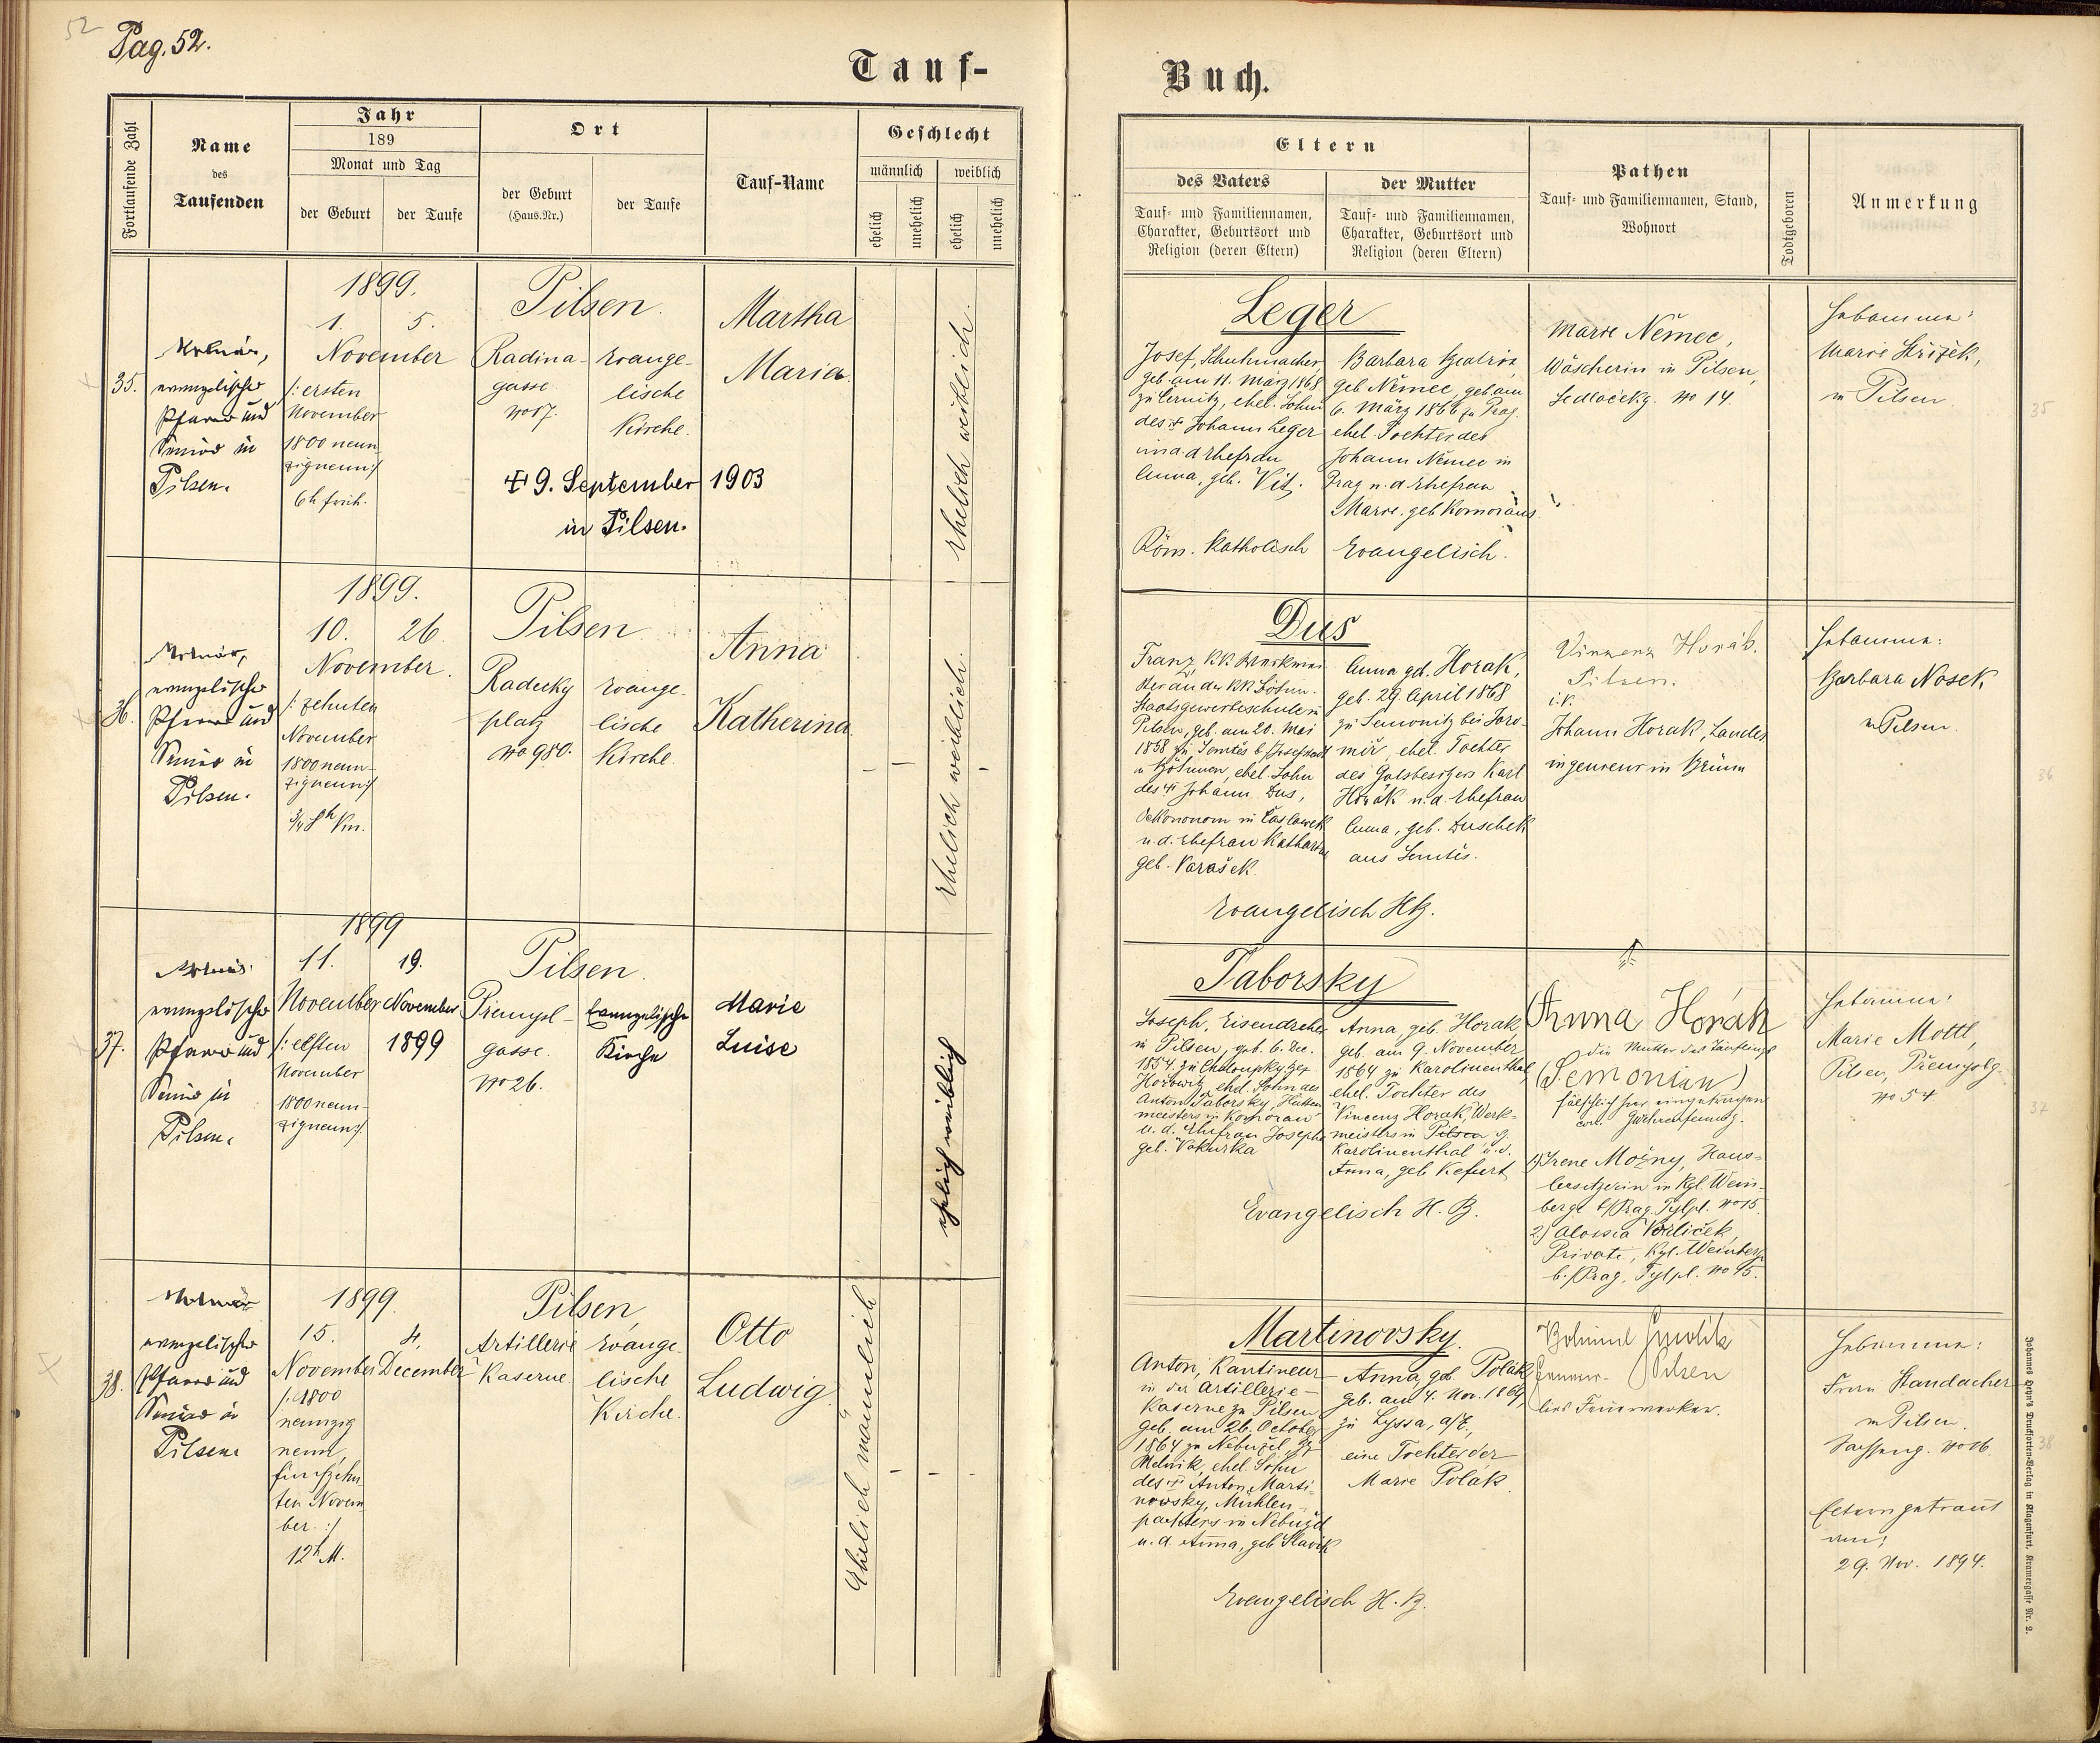 52
Pag. 52.
Tauf-
Fortlaufende Zahl
Name
des
Taufenden
Jahr
189
Monat und Tag
der Geburt
der Taufe
Ort
der Geburt
(Haus-Nr.)
der Taufe
Tauf-Name
Geschlecht
männlich
weiblich
ehelich
unehelich
ehelich
unehelich
35.
Molnár,
evangelischer
Pfarrer und
Senior in
Pilsen.
1899.
1. 5.
November
/: ersten
November
1800 neun
zigneun :/
6h früh.
Pilsen.
Radina-
gasse
No 17.
Evange-
lische
Kirche.
Martha
Maria.
9. September 1903
in Pilsen.
Ehelich weiblich.
36.
Molnár,
evangelischer
Pfarrer und
Senior in
Pilsen.
1899.
10. 26.
November.
/: zehnten
November
1800 neun-
zigneun :/
Pilsen
Radecky
platz
No 980.
Evange-
lische
Kirche.
Anna
Katherina
Ehelich weiblich.
37.
Molnár
evangelischer
Pfarrer und
Senior in
Pilsen.
1899
11. 19.
November November
1899
/: elften
November
1800 neun-
zigneun :/
Pilsen.
Přemysl-
gasse.
No 26.
Evangelische
Kirche
Marie
Luise
ehelich weiblich
38.
Molnár
evangelischer
Pfarrer und
Senior in
Pilsen.
1899.
15. 4.
November December
/: 1800
neunzig
neun,
fünfzehn
ten Novem
ber. :/
12h M.
Pilsen,
Artillerie
Kaserne
Evange-
lische
Kirche.
Otto
Ludwig
Ehelich männlich
Buch.
Eltern
des Vaters
Tauf- und Familiennamen,
Charakter, Geburtsort und
Religion (deren Eltern)
der Mutter
Tauf- und Familiennamen,
Charakter, Geburtsort und
Religion (deren Eltern)
Pathen
Tauf- und Familiennamen, Stand,
Wohnort
Todtgeboren
Anmerkung
Leger
Josef, Schuhmacher,
geb. am 11. März 1868
zu Černitz, ehel. Sohn
des Johann Leger
und d. Ehefrau
Anna, geb. Vit.
Röm. Katholisch
Barbara
geb. Němec, geb. am
6. März 1866 zu Prag.
ehel. Tochter des
Johann Němec in
Prag u. d. Ehefrau
Marie, geb.
Evangelisch.
Marie Němec,
Wäscherin in Pilsen,
Sedlačekg. No 14.
Hebamme:
Marie Střižek,
in Pilsen
35
Dus
Franz, KK Werkmei
ster an der KK Böhm.
Staatsgewerbeschule in
Pilsen, geb. am 20. Mai
1858 zu Semtěs b/Josefstadt
in Böhmen, ehel. Sohn
des Johann Dus,
Oekonom in
u. d. Ehefrau Katharina
geb. Varašek.
Anna geb. Horak,
geb. 29 April 1868
zu Semonitz bei Jaro-
měř, ehel. Tochter
des Gutsbesitzers Karl
Horák u. d. Ehefrau
Anna, geb. Duschek
aus Semtěs.
Evangelisch HB.
Vinzenz Horák.
Pilsen.
i. V.
Johann Horak, Landes
ingenieur in Brünn
Hebamme:
Barbara Nosek
in Pilsen
36
Taborsky
Joseph, Eisendreher
in Pilsen, geb. 6. Dec.
1854 zu Chaloupky Bez.
Hořowitz, ehel. Sohn des
Anton Taborsky, Hütten
meisters in Komorau
u. d. Ehefrau Josepha
geb. Vokurka
Anna, geb. Horak,
geb. am 9. November
1864 zu Karolinenthal,
ehel. Tochter des
Vincenz Horak, Werk-
meisters in Pilsen
Karolinenthal u. d.
Anna, geb. Kefurt
Evangelisch H. B.
Anna Horák
die Mutter des Täuflings
(Semonian)
fälschlich hier eingetragen
1) Irene Možny, Haus-
besitzerin in Kgl. Wein-
berge b/Prag, Tylpl. No 15.
2) Aloisia Vorliček,
Private, Kgl. Weinberge
b./Prag, Tylpl. No 15.
Hebamme:
Marie Mottl,
Pilsen, Přemyslg.
No 54
37
Martinovsky.
Anton, Kantineur
in der Artillerie-
Kaserne zu Pilsen
geb. am 26. October
1864 zu Nebužel, Bz
Melnik, ehel. Sohn
des Anton Marti-
nowsky, Mühlen-
pächters in Nebužel
u. d. Anna, geb. Slavik
Anna geb. Polák,
geb. am 4. Nov. 1869,
zu Lyssa, a/E,
eine Tochter der
Marie Polak.
Evangelisch H. B.
Bohumil
Pilsen
Feuerwerker.
Hebamme:
Frau Standacher
in Pilsen.
Eltern getraut
am:
29. Nov. 1894.
38
Johannes Heyn's Drucksorten-Verlag in Klagenfurt, Kramergasse Nr. 2.